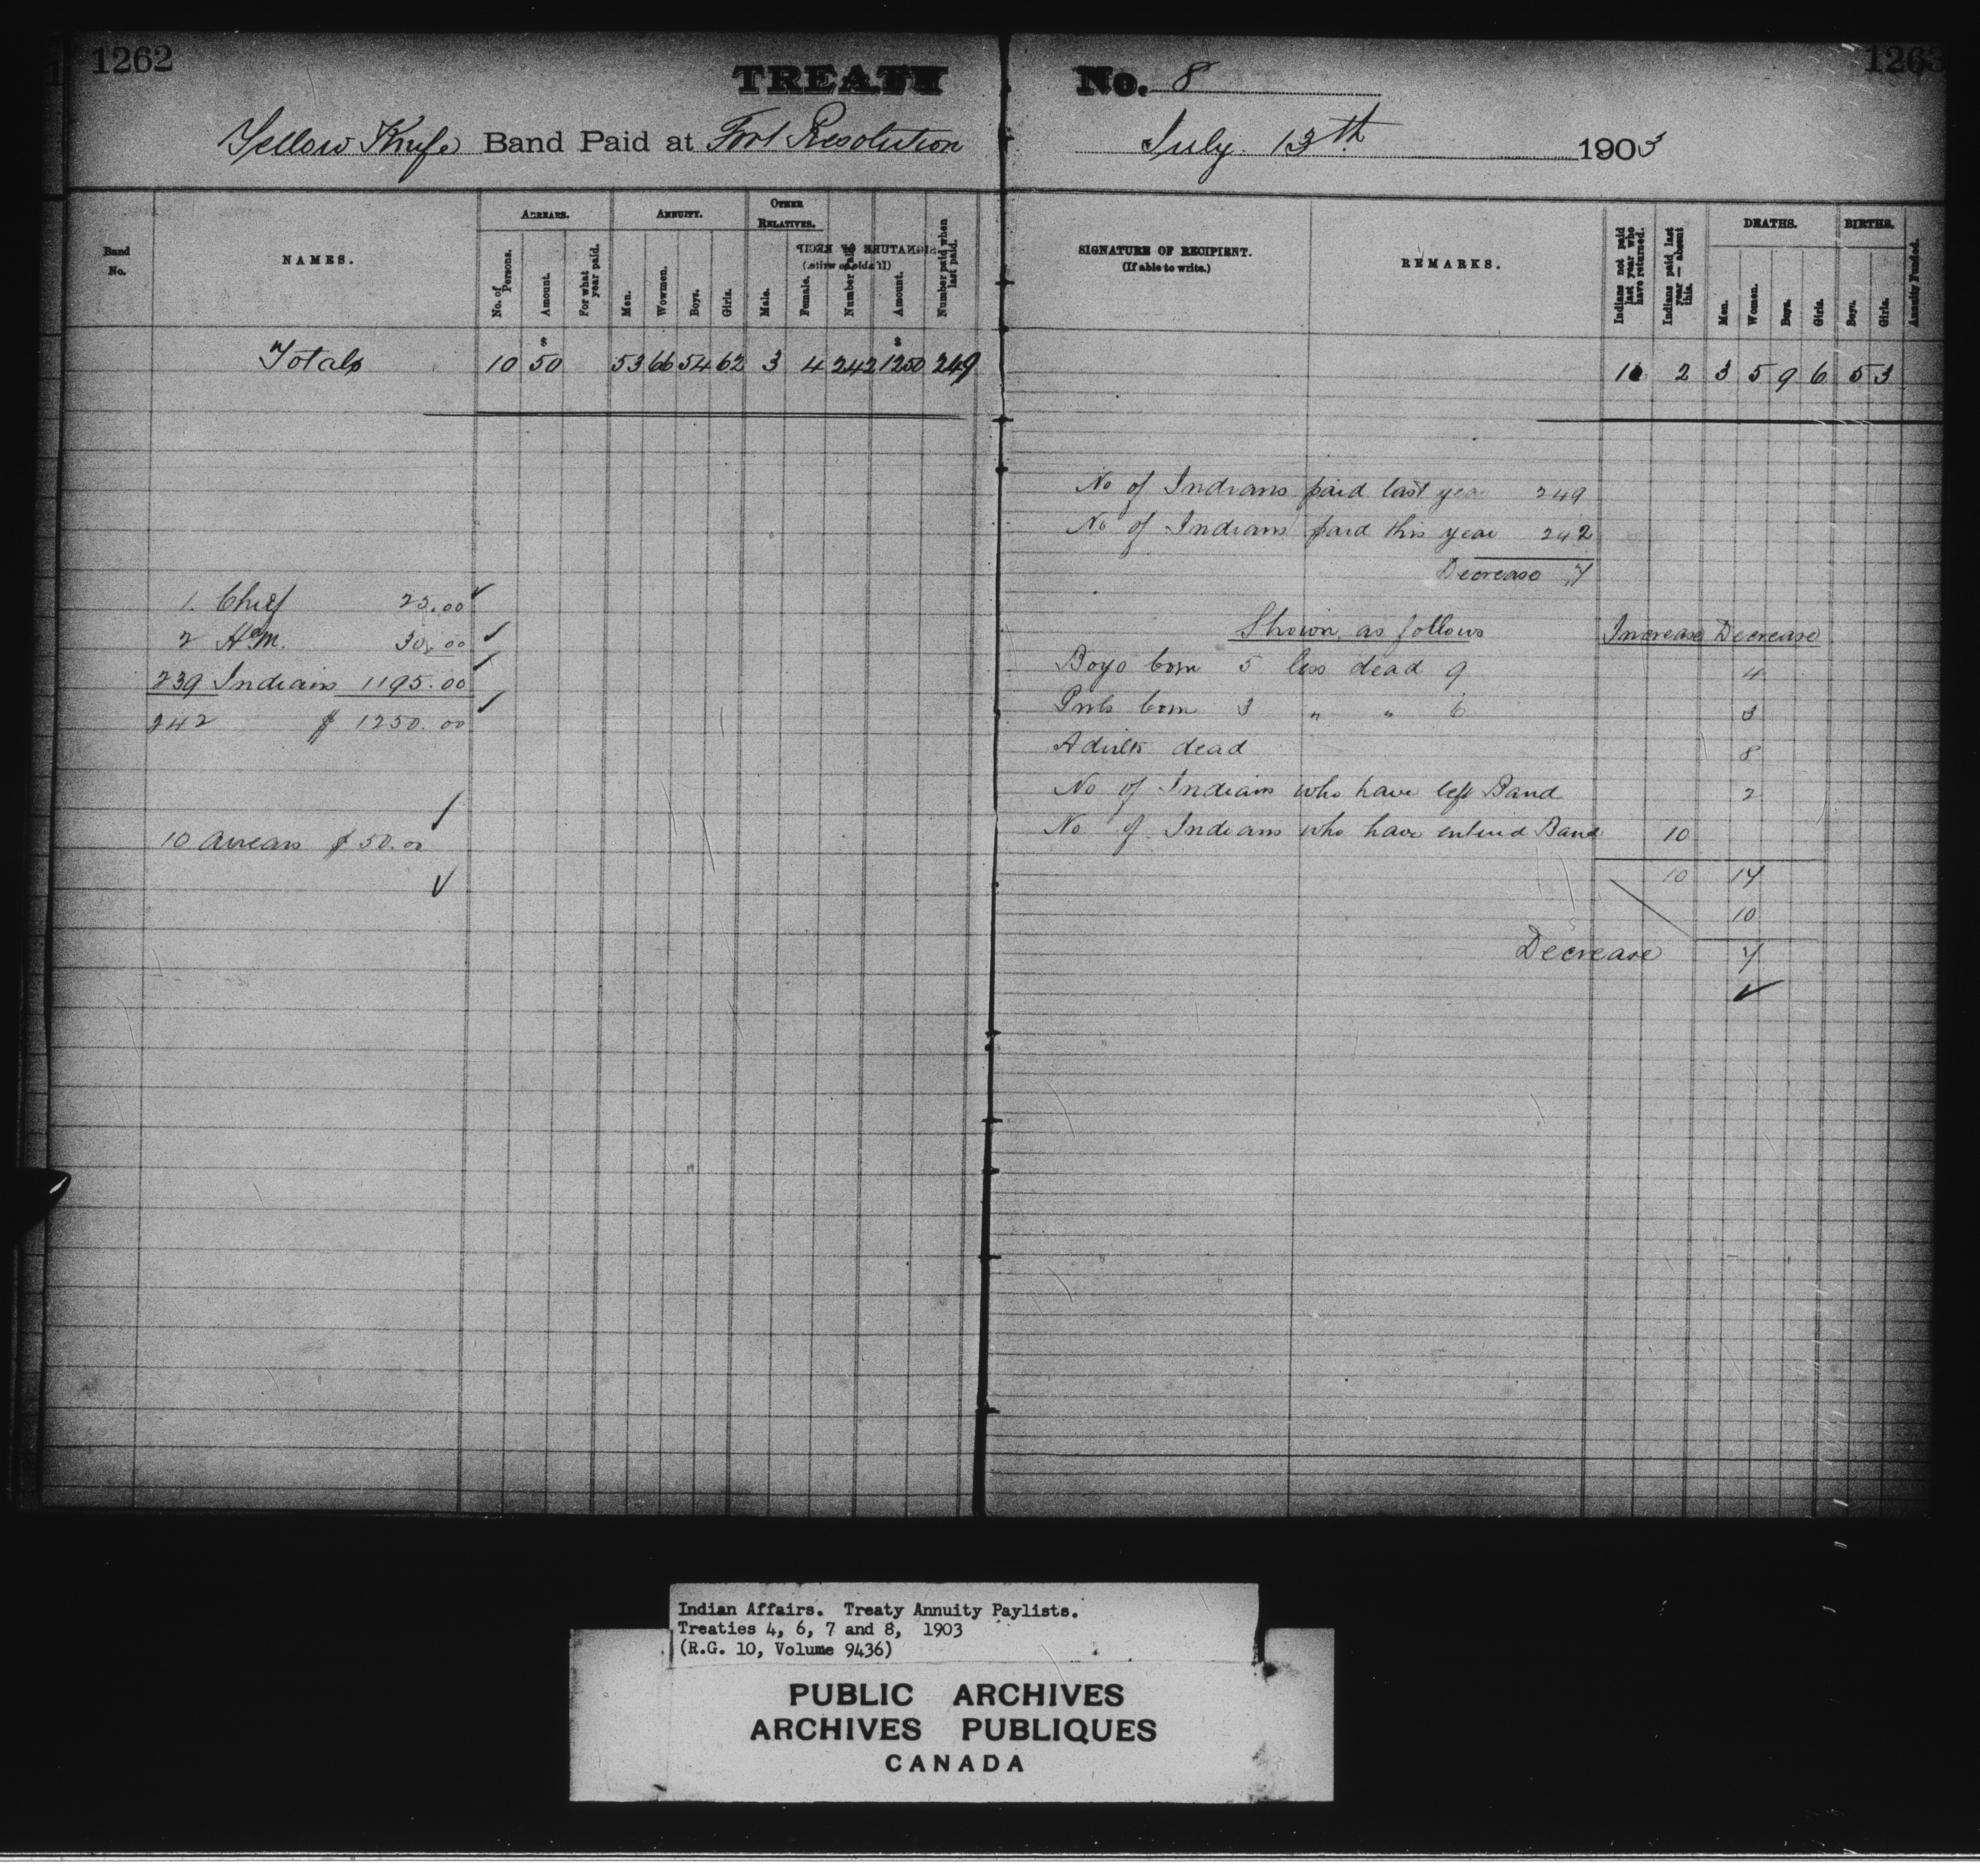 1262
1263
TREATY No. 8
Yellow Knife Band Paid at Fort Resolution July 13th 1903
Band No.
NAMES.
ARREARS.
No. of Persons.
Amount.
For what year paid.
ANNUITY.
Men.
Wowmen.
Boys.
Girls.
OTHER RELATIVES.
Male.
Female.
Number Paid.
Amount.
Number paid when last paid.
SIGNATURE OF RECIPIENT.
(If able to write.)
REMARKS.
Indians not paid last year who have returned.
Indians paid last year — absent this.
DEATHS.
Men.
Women.
Boys.
Girls.
BIRTHS.
Boys.
Girls.
Annuity Funded.
$ $
Totals 10 50 53 66 54 62 3 4 242 1250 249 10 2 3 5 9 6 5 3
1. Chief 25.00 ✓
2 H.M. 30.00 ✓
239 Indians 1195.00 ✓
242 $ 1250.00 ✓
10 Arrears $ 50.00 ✓
✓
No of Indians paid last year 249
No of Indians paid this year 242
Decrease 7
Shown as follows Increase Decrease
Boys born 5 less dead 9 4
Girls born 3 " " 6 3
Adults dead 8
No of Indians who have left Band 2
No of Indians who have entered Band 10
10 17
10
Decrease 7
✓
Indian Affairs. Treaty Annuity Paylists.
Treaties 4, 6, 7 and 8, 1903
(R.G. 10, Volume 9436)
PUBLIC ARCHIVES
ARCHIVES PUBLIQUES
CANADA